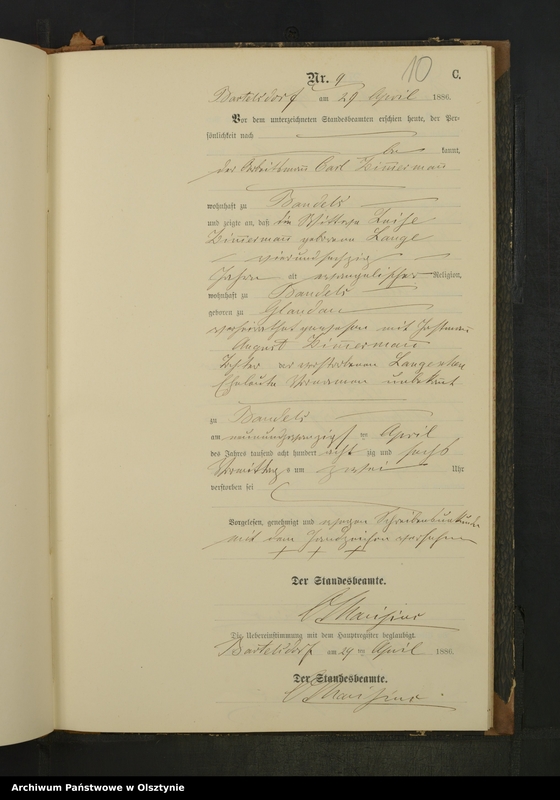 10
Nr. 9 C.
Bartelsdorf am 29 April 1886.
Vor dem unterzeichneten Standesbeamten erschien heute, der Per-
sönlichkeit nach
be kannt,
der Arbeitsmann Carl Zimmermann
wohnhaft zu Bandels
und zeigte an, daß die Wittwe Luise
Zimmermann geborene Lange
vierundsechzig
Jahren alt evangelischer Religion,
wohnhaft zu Bandels
geboren zu Glandau
verheirathet gewesen mit
August Zimmermann
Tochter der verstorbenen
Eheleute Vornamen unbekannt
zu Bandels
am neunundzwanzigsten April
des Jahres tausend acht hundert acht zig und sechs
Vormittags um zwei Uhr
verstorben sei
Vorgelesen, genehmigt und wegen Schreibensunkunde
mit dem Handzeichen versehen
+ + +
Der Standesbeamte.
Die Uebereinstimmung mit dem Hauptregister beglaubigt.
Bartelsdorf am 29 ten April 1886.
Der Standesbeamte.
Archiwum Państwowe w Olsztynie